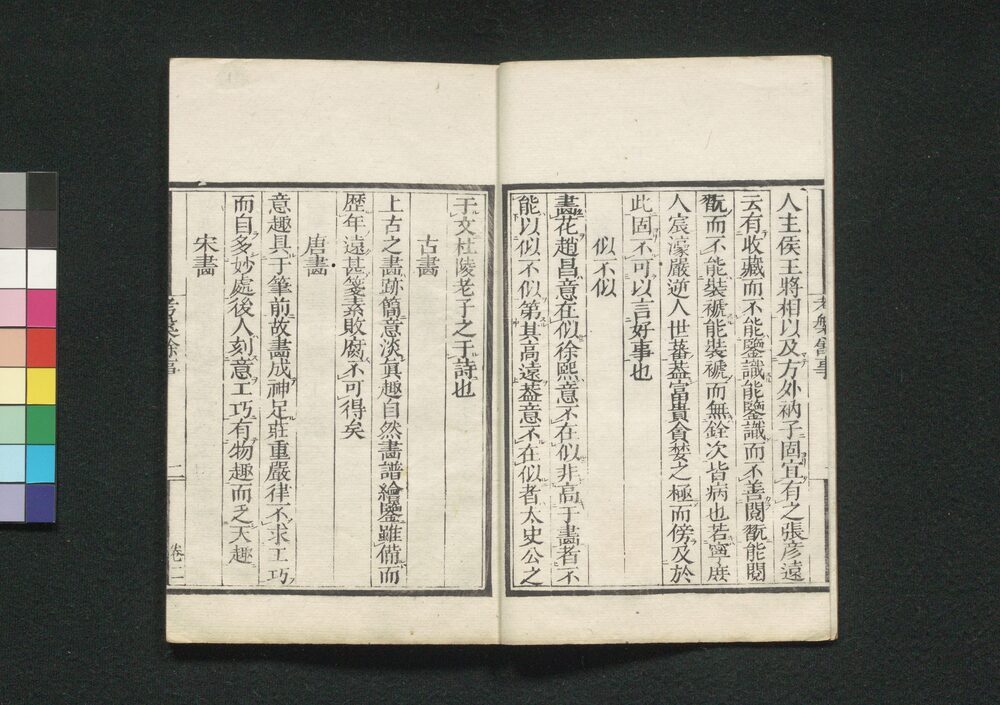 人主侯王將相以及方外衲子固宜有之張彥遠
云有收藏而不能鑒識能鑒識而不善閱翫能閱
翫而不能裝褫能裝褫而無銓次皆病也若
人宸濠嚴逆人世蕃葢富貴貪婪之極而傍及於
此固不可以言好事也
似不似
畫花趙昌意在似徐熙意不在似非高于畫者不
能以似不似第其高遠葢意不在似者太史公之
于文杜陵老子之于詩也
古畫
上古之畫跡簡意淡眞趣自然畫譜繪鑒雖備而
歷年遠甚箋素敗腐不可得矣
唐畫
意趣具于筆前故畫成神足莊重嚴律不求工巧
而自多妙處後人刻意工巧有物趣而乏天趣
宋畫
考槃餘事
二
卷二